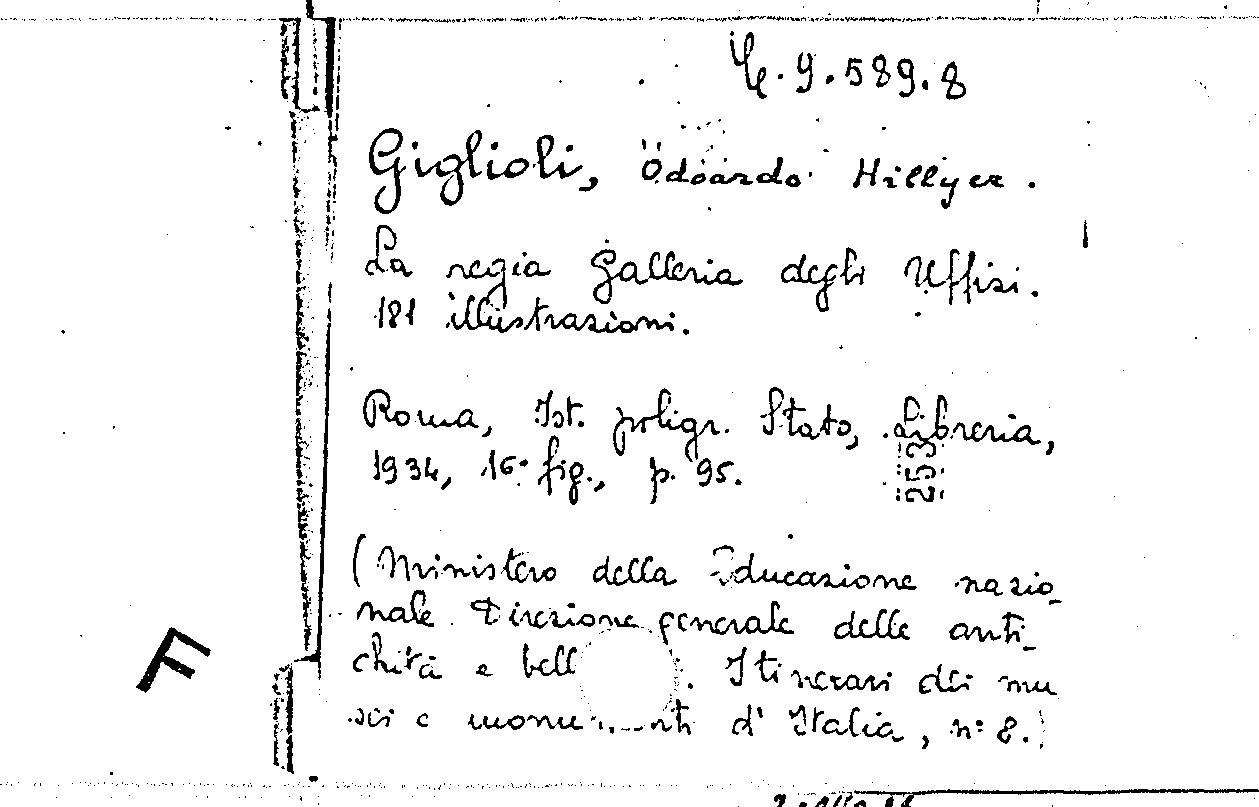 4.9.589.8
Giglioli, Odoardo Hillyer.
La regia Galleria degli Uffizi.
181 illustrazioni.
Roma, Ist. poligr. Stato, Libreria,
1934, 16° fig., p. 95.
253
(Ministero della Educazione nazio_
nale. Direzione generale delle anti_
chità e bell . Itinerari dei mu
sei e monumenti d'Italia, n° 8.)
F